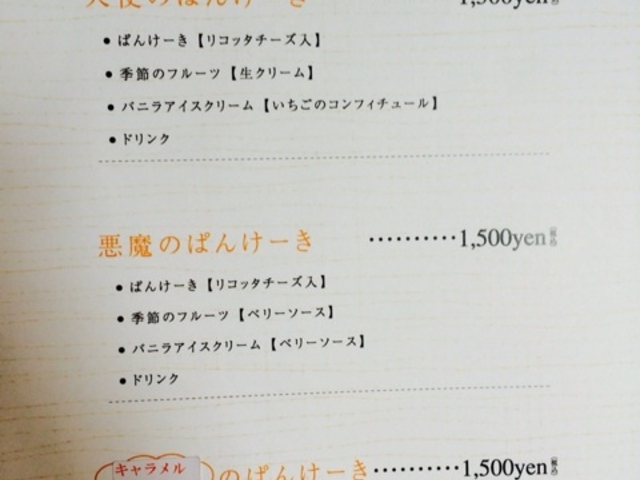 天使のぱんけーき 1,500yen
● ぱんけーき【リコッタチーズ入】
● 季節のフルーツ【生クリーム】
● バニラアイスクリーム【いちごのコンフィチュール】
● ドリンク
悪魔のぱんけーき ··········1,500yen
● ぱんけーき【リコッタチーズ入】
● 季節のフルーツ【ベリーソース】
● バニラアイスクリーム【ベリーソース】
● ドリンク
キャラメルのぱんけーき ··········1,500yen